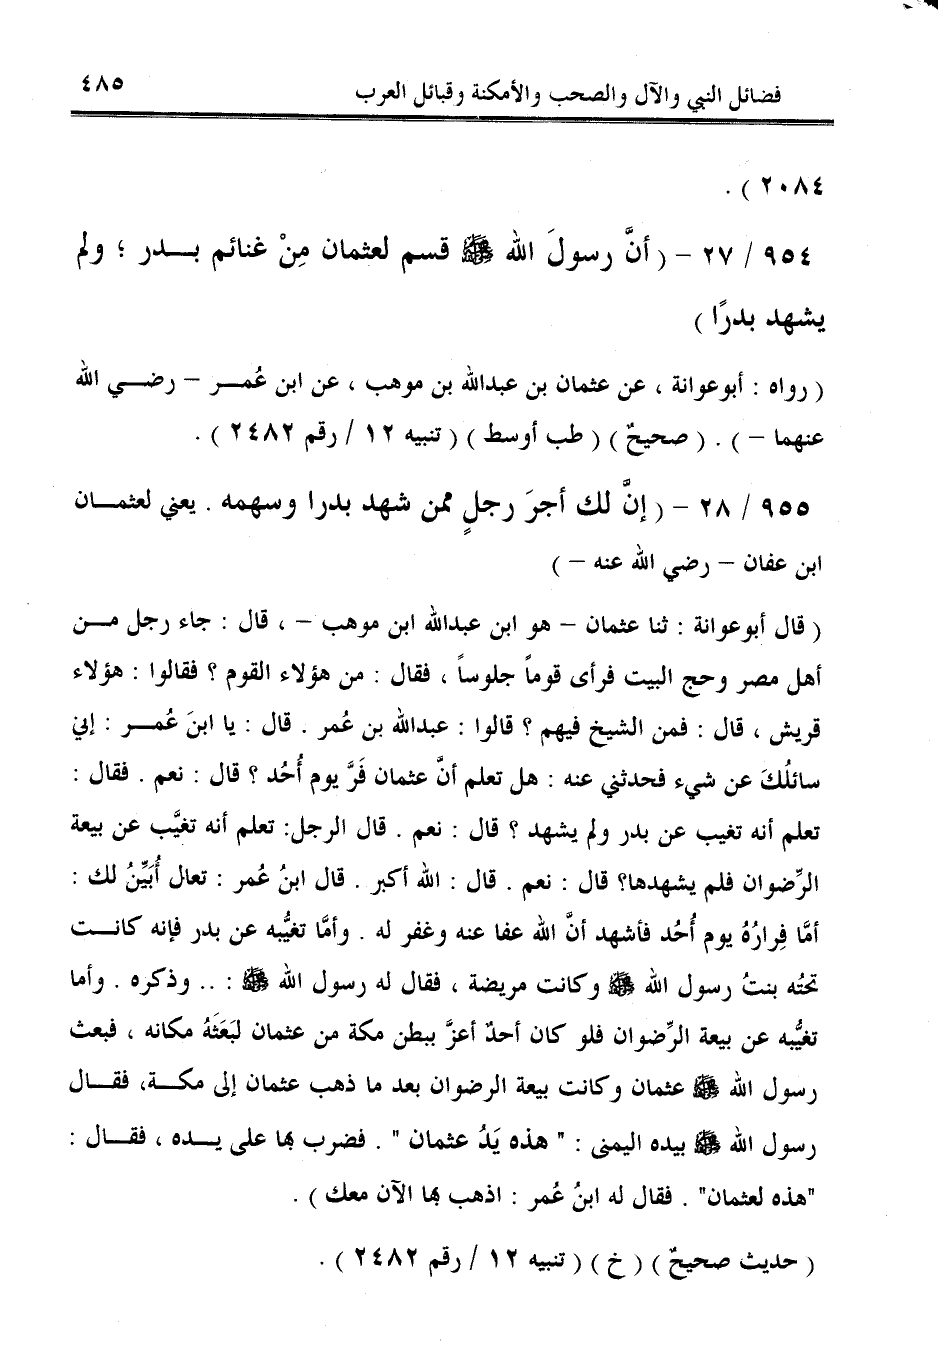 فضائل النبي والآل والصحب والأمكنة وقبائل العرب
٤٨٥
٢٠٨٤ ) .
٩٥٤ / ٢٧ – ( أنَّ رسولَ الله ﷺ قسم لعثمان مِنْ غنائم بـــدر ؛ ولم
يشهد بدرًا )
( رواه : أبوعوانة ، عن عثمان بن عبدالله بن موهب ، عن ابن عُمـــر – رضـــي الله
عنهما – ) . ( صحيحٌ ) ( طب أوسط ) ( تنبيه ١٢ / رقم ٢٤٨٢ ) .
٩٥٥ / ٢٨ – ( إنَّ لك أجرَ رجلٍ ممن شهد بدرا وسهمه . يعني لعثمـــان
ابن عفان – رضي الله عنه – )
( قال أبوعوانة : ثنا عثمان – هو ابن عبدالله ابن موهب – ، قال : جاء رجل مـــن
أهل مصر وحج البيت فرأى قوماً جلوساً ، فقال : من هؤلاء القوم ؟ فقالوا : هؤلاء
قريش ، قال : فمن الشيخ فيهم ؟ قالوا : عبدالله بن عُمر . قال : يا ابنَ عُمـــر : إني
سائلُكَ عن شيء فحدثني عنه : هل تعلم أنَّ عثمان فَرَّ يوم أُحُد ؟ قال : نعم . فقال :
تعلم أنه تغيب عن بدر ولم يشهد ؟ قال : نعم . قال الرجل: تعلم أنه تغيَّب عن بيعة
الرِّضوان فلم يشهدها؟ قال : نعم . قال : الله أكبر . قال ابنُ عُمر : تعال أُبَيِّنُ لك :
أمَّا فِرارُهُ يوم أُحُد فأشهد أنَّ الله عفا عنه وغفر له . وأمَّا تغيُّبه عن بدر فإنه كانـــت
تحتُه بنتُ رسول الله ﷺ وكانت مريضة ، فقال له رسول الله ﷺ : .. وذكره . وأما
تغيُّبه عن بيعة الرِّضوان فلو كان أحدٌ أعزَّ ببطن مكة من عثمان لبَعَثَهُ مكانه ، فبعث
رسول الله ﷺ عثمان وكانت بيعة الرضوان بعد ما ذهب عثمان إلى مكـــة، فقـــال
رسول الله ﷺ بيده اليمنى : " هذه يَدُ عثمان " . فضرب بها على يـــده ، فقـــال :
"هذه لعثمان" . فقال له ابنُ عُمر : اذهب بها الآن معك ) .
( حديث صحيحٌ ) ( خ ) ( تنبيه ١٢ / رقم ٢٤٨٢ ) .